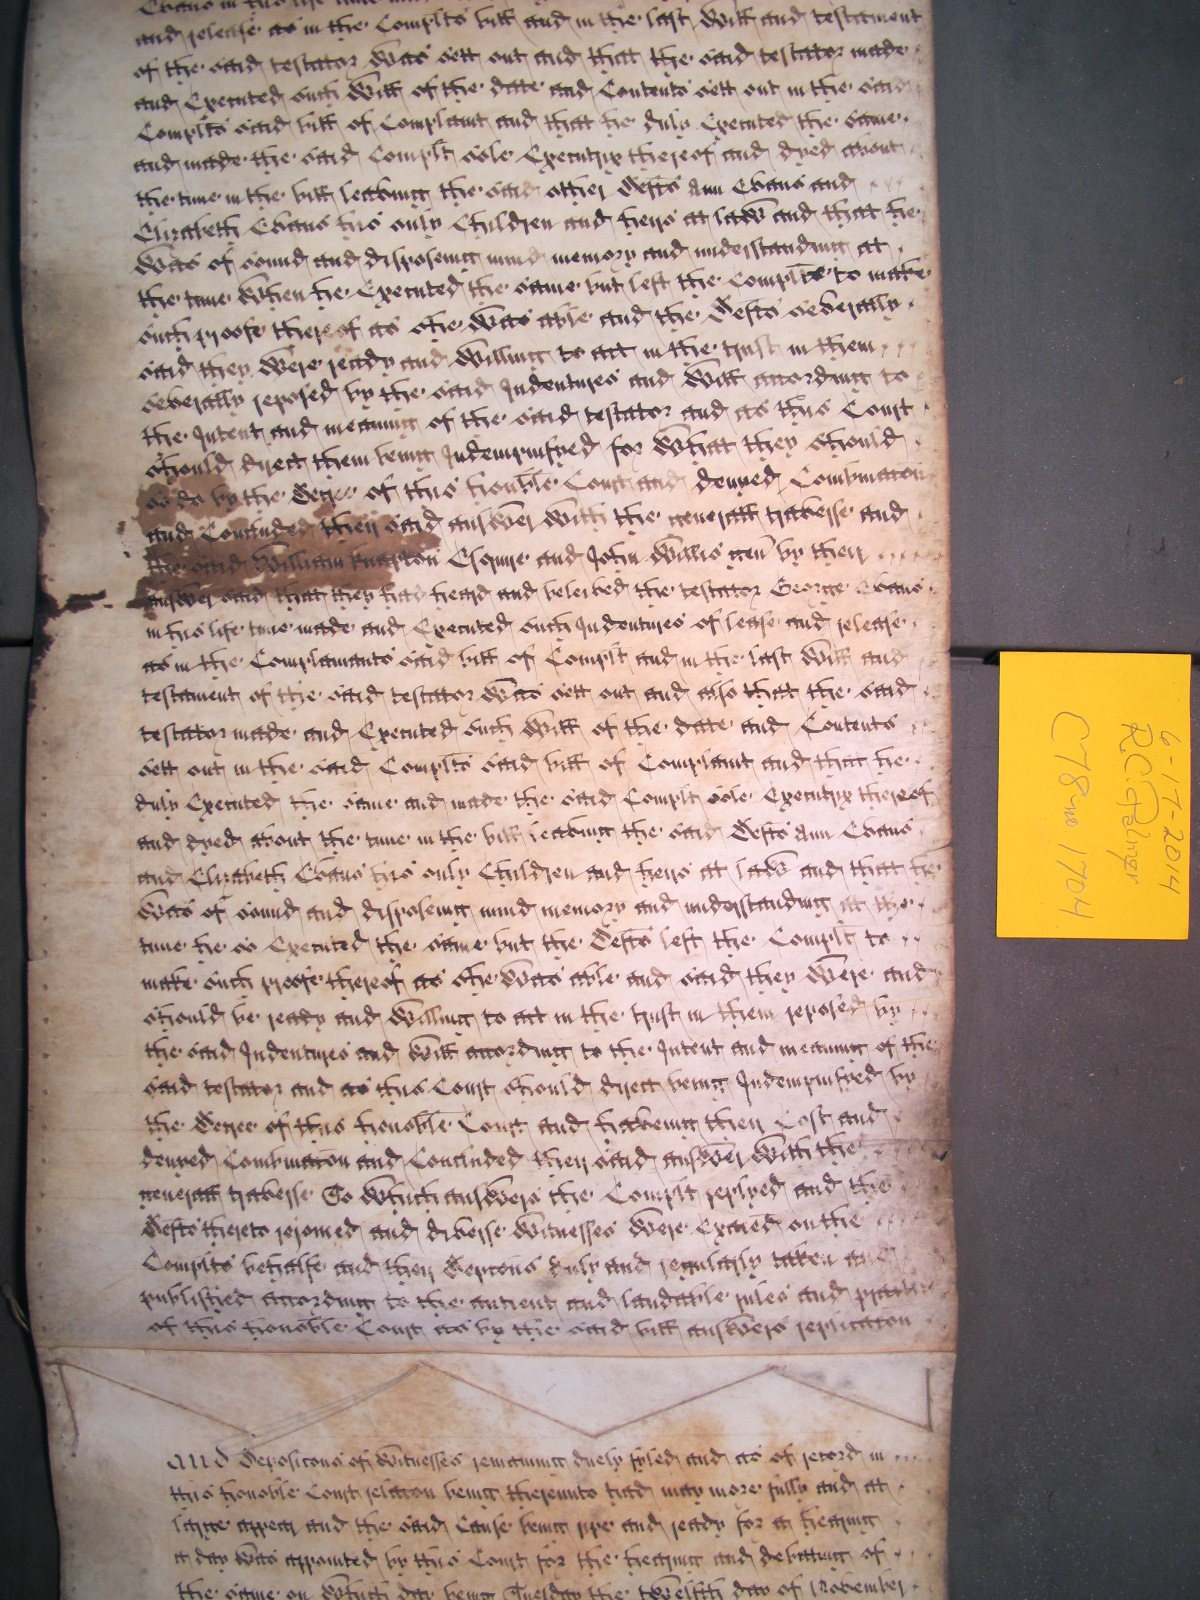 and release as in the Complts bill and in the last Will and testament
of the said testator Was sett out and that the said testator made
and Executed such Will of the date and Contents sett out in the said
Complts said bill of Complaint and that he duly Executed the same
and made the said Complt sole Executrix thereof and dyed about
the time in the bill leaving the said other Defts Ann Evans and
Elizabeth Evans his only Children and heirs at law and that he
Was of sound and disposeing mind memory and understanding at
the time When he Executed the same but left the Complte to make
such proofe thereof as she Was able and the Defts severally
said they Were ready and Willing to act in the trust in them
severally reposed by the said Indentures and Will according to
the Intent and meaning of the said testator and as this Court
should direct them being Indempnifyed for What they should
so do by the Decree of this honoble Court and denyed Combinacon
and Concluded their said answer With the generall traverse and
the said William Knapton Esquire and John Willis gen by their
answer said that they had heard and beleived the testator George Evans
in his life time made and Executed such Indentures of lease and release
as in the Complainants said bill of Complt and in the last Will and
testament of the said testator Was sett out and also that the said
testator made and Executed such Will of the date and Contents
sett out in the said Complts said bill of Complaint and that he
duly Executed the same and made the said Complt sole Executrix thereof
and dyed about the time in the bill leaving the said Defts Ann Evans
and Elizabeth Evans his only Children and heirs at law and that he
Was of sound and disposeing mind memory and understanding at the
time he so Executed the same but the Defts left the Complt to
make such proofe thereof as she Was able and said they Were and
should be ready and Willing to act in the trust in them reposed by
the said Indentures and Will according to the Intent and meaning of the
said testator and as this Court should direct being Indempnifyed by
the Decree of this honoble Court and haveing their Cost and
denyed Combinacon and Concluded their said answer With the
generall traverse To Which answers the Complt replyed and the
Defts thereto rejoined and diverse Witnesses Were Exaied on the
Complts behalfe and their Depcons duly and regularly taken and
published according to the antient and laudable rules and practice
of this honoble Court as by the said bill answers replicaton
and Deposicons of Witnesses remaining duely fyled and as of record in
this honoble Court relacon being thereunto had may more fully and at
large appear and the said Cause being ripe and ready for a hearing
a day Was appointed by this Court for the hearing and debateing of
the same on Which day being Tuesday the twelfth day of November
6-17-2014
R.C.
C78 no. 1704